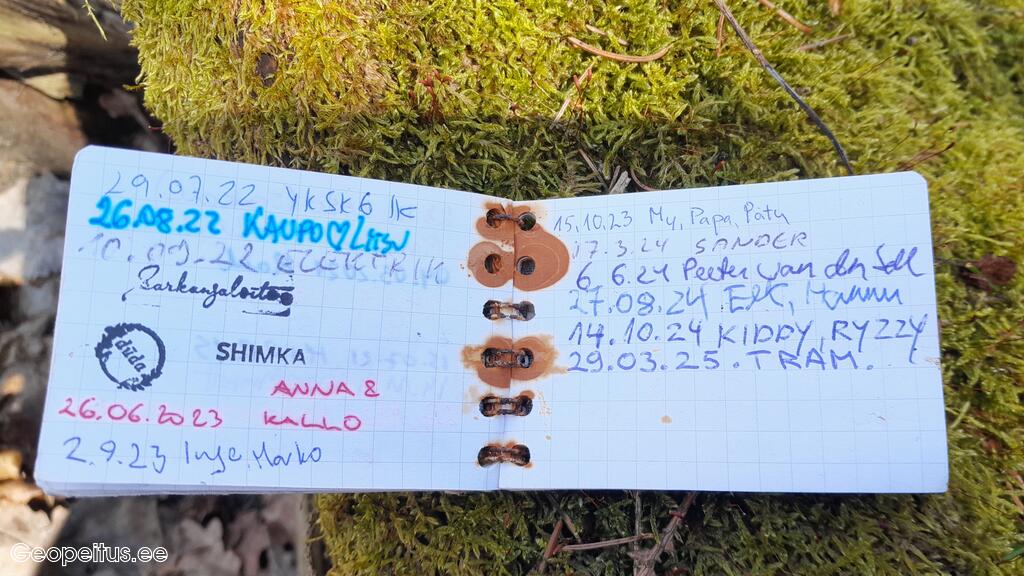 29.07.22 YKSK6 IK
26.08.22 KAUPO♡
10.09.22 ELEKTRIK
düda
SHIMKA
ANNA &
26.06.2023 KALLO
2.9.23 Inge, Marko
15.10.23 My, Papa, Patu
17.3.24 SANDER
6.6.24 Peeter van den
27.08.24 EK, Hannu
14.10.24 KIDDY, RYZZY
29.03.25. TRAM.
Geopeitus.ee